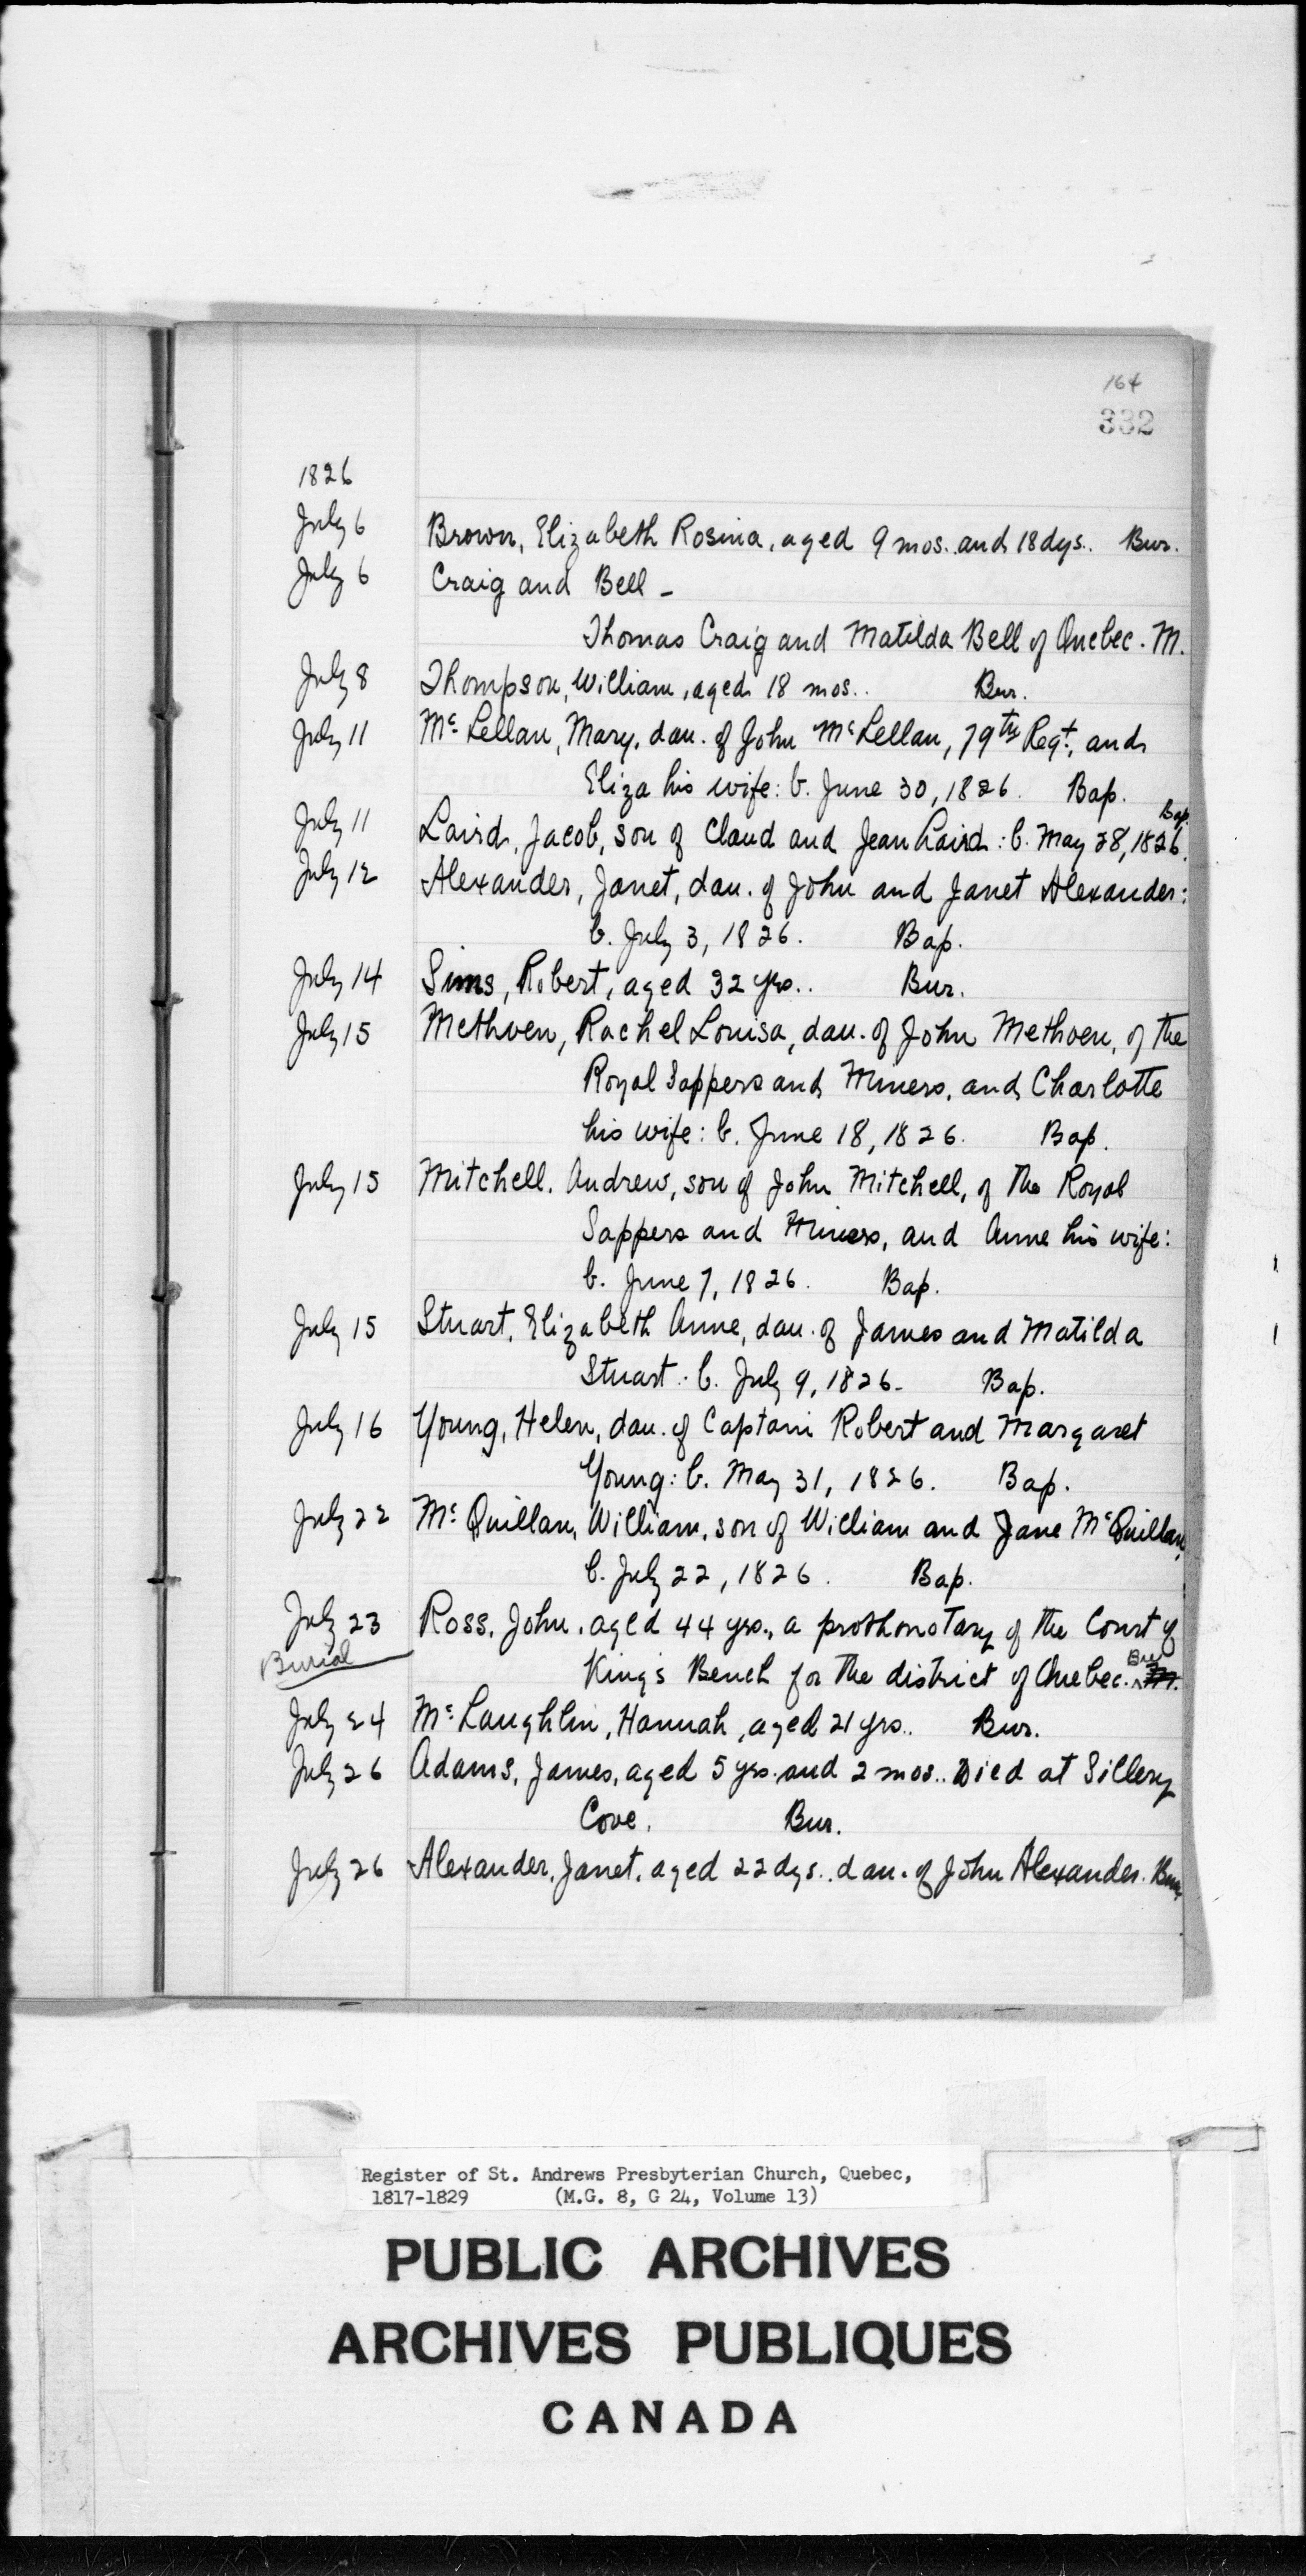 164
332
1826
July 6 Brown, Elizabeth Rosina, aged 9 mos. and 18 dys. Bur.
July 6 Craig and Bell -
Thomas Craig and Matilda Bell of Quebec. M.
July 8 Thompson, William, aged 18 mos.. Bur.
July 11 Mc Lellan, Mary, dau. of John McLellan, 79th Regt., and
Eliza his wife: b. June 30, 1826. Bap.
July 11 Laird, Jacob, son of Claud and Jean Laird: b. May 28, 1826. Bap.
July 12 Alexander, Janet, dau. of John and Janet Alexander:
b. July 3, 1826. Bap.
July 14 Sims, Robert, aged 32 yrs.. Bur.
July 15 Methven, Rachel Louisa, dau. of John Methven, of the
Royal Sappers and Miners, and Charlotte
his wife: b. June 18, 1826. Bap.
July 15 Mitchell, Andrew, son of John Mitchell, of the Royal
Sappers and Miners, and Anne his wife:
b. June 7, 1826. Bap.
July 15 Stuart, Elizabeth Anne, dau. of James and Matilda
Stuart: b. July 9, 1826. Bap.
July 16 Young, Helen, dau. of Captain Robert and Margaret
Young: b. May 31, 1826. Bap.
July 22 Mc Quillan, William, son of William and Jane McQuillan,
b. July 22, 1826. Bap.
July 23 Ross, John, aged 44 yrs., a prothonotary of the Court of
Burial King's Bench for the district of Quebec. Bur M.
July 24 Mc Laughlin, Hannah, aged 21 yrs.. Bur.
July 26 Adams, James, aged 5 yrs. and 2 mos.. Died at Sillery
Cove. Bur.
July 26 Alexander, Janet, aged 22 dys.. dau. of John Alexander. Bur.
Register of St. Andrews Presbyterian Church, Quebec,
1817-1829 (M.G. 8, G 24, Volume 13)
PUBLIC ARCHIVES
ARCHIVES PUBLIQUES
CANADA